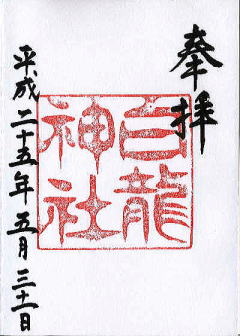 奉拝
白龍
神社
平成二十五年五月三十一日